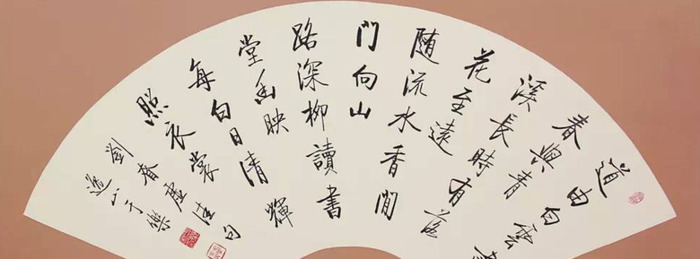 道由白雲盡
春與青
溪長時有落
花至遠
隨流水香閒
門向山
路深柳讀書
堂幽映
每白日清輝
照衣裳
劉眘虛佳句